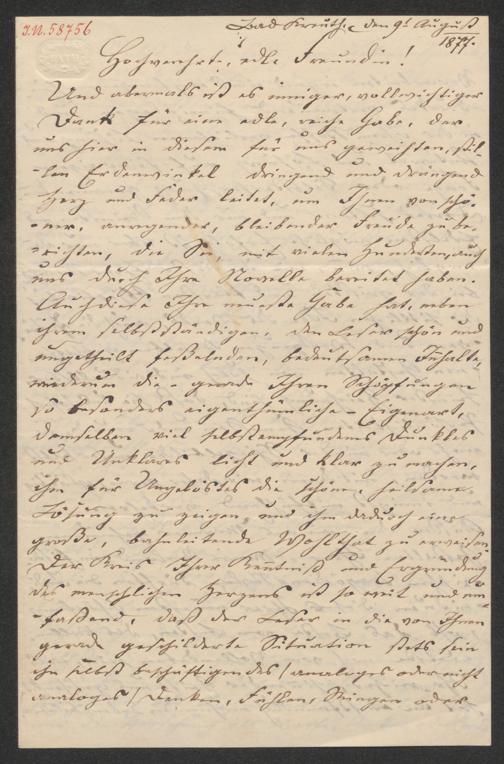 I.N. 58756
Bad Kreuth, den 9t August
1877.
Hochverehrte, edle Freundin!
Und abermals ist es inniger, vollwichtiger
Dank für eine edle, reiche Gabe, der
uns hier in diesem für uns geweihten, stil-
-len Erdenwinkel dringend und drängend
Herz und Feder leitet, um Ihnen von schö-
-ner, anregender, bleibender Freude zu be-
-richten, die Sie, mit vielen Hunderten, auch
uns durch Ihre Novelle bereitet haben.
Auch diese Ihre neueste Gabe hat, neben
ihrem selbstständigen, den Leser schön und
ungetheilt fesselnden, bedeutsamen Inhalte,
wiederum die – gerade Ihren Schöpfungen
so besonders eigenthümliche – Eigenart,
demselben viel selbstempfundenes Dunkles
und Unklares licht und klar zu machen,
ihm für Ungelöstes die schöne, heilsame
Lösung zu zeigen, und ihm dadurch eine
große, bahnleitende Wohlthat zu erweisen.
Der Kreis Ihrer Kenntniß und Ergründung
des menschlichen Herzens ist so weit und um-
-fassend, daß der Leser in die von Ihnen
gerade geschilderte Situation stets sein
ihn selbst beschäftigendes / analoges oder nicht
analoges / Denken, Fühlen, Ringen oder